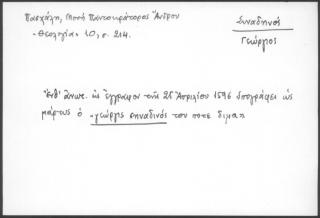 Πασχάλη, Μονή Παντοκράτορος Ἄνδρου
«Θεολογία» 10, σ. 214.
Συναδηνός
Γεώργιος
Ἔνθ' ἀνωτ. εἰς ἔγγραφον τῆς 25 Ἀπριλίου 1596 ὑπογράφει ὡς
μάρτυς ὁ «γεώργις συναδινός του ποτε διμα»